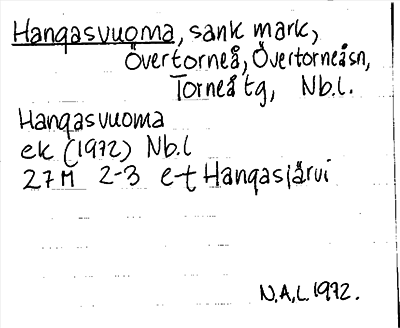 Hangasvuoma, sank mark,
Övertorneå, Övertorneåsn,
Torneå tg, Nb.l.
Hangasvuoma
ek (1972) Nb.l
27M 2-3 e-t Hangasjärvi
N.A.L. 1972.